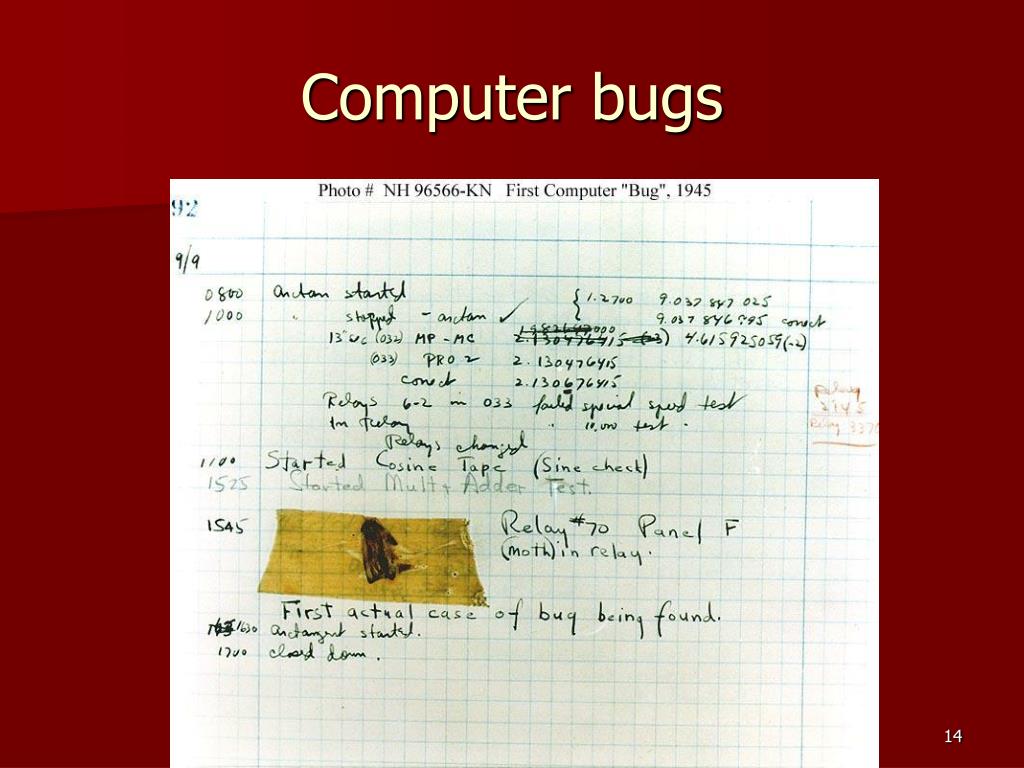 Computer bugs
Photo # NH 96566-KN First Computer "Bug", 1945
92
9/9
0800 arctan started
1000 " stopped - arctan ✓
{ 1.2700 9.037 847 025
9.037 846 995 correct
13"uc (032) MP - MC 2.130476415 (-3) 4.615925059(-2)
(033) PRO 2 2.130476415
correct 2.130676415
Relays 6-2 in 033 failed special speed test
In Relay " 10,000 test .
Relay
2145
Relay 3370
Relays changed
1100 Started Cosine Tape (Sine check)
1525 Started Mult+ Adder Test.
1545 Relay #70 Panel F
(moth) in relay.
First actual case of bug being found.
1630 arctangent started.
1700 closed down .
14